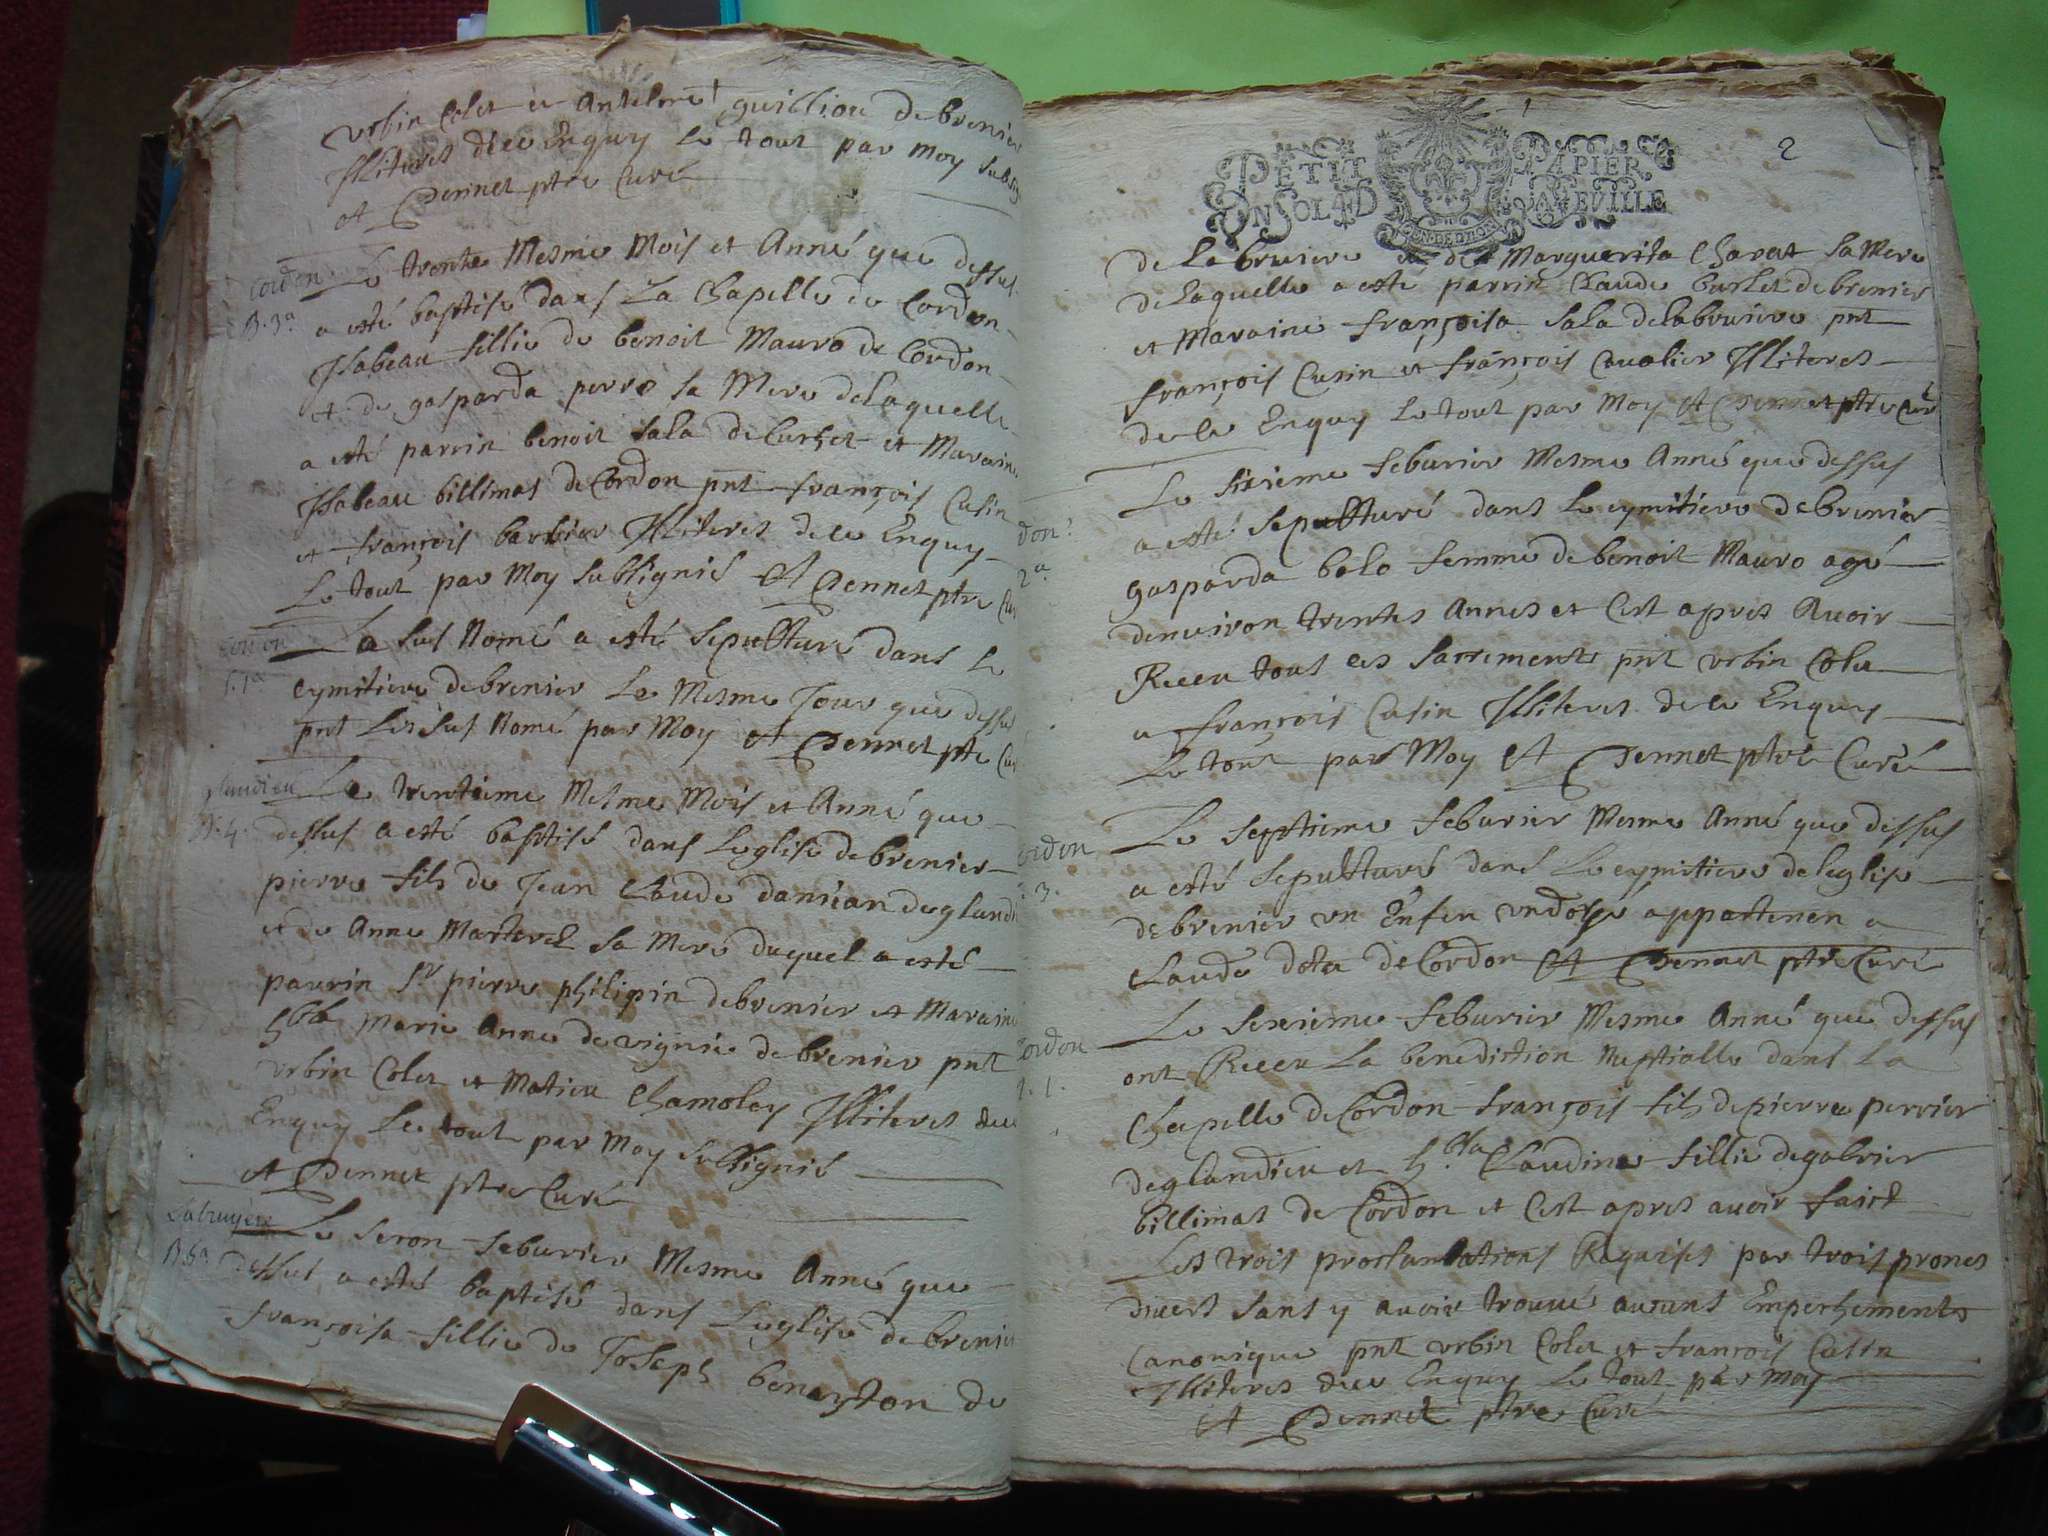 urbin Colet et Antelme guilliou de brenier
Illiteres de ce Enquy Le tout par moy subsig
et Pennet ptre Curé
Cordon
B. 3a
Le trente Mesme Mois et Anné que dessus
a esté baptisé dans La Chapelle de Cordon
Isabeau fillie de benoit Mauro de Cordon
et de gasparda perro sa Mere de Laquelle
a esté parrin benoit sala de Curhet et Maraine
Isabeau billimas de Cordon pnt françois Cusin
et françois barbier Illiteres de ce Enquy
Le tout par Moy subsignés et Pennet ptre Cu
Cordon
S. 1a
La sus Nomé a esté sepulturé dans Le
cymitiere de brenier Le Mesme Jour que dessu
pnt Les sus Nomé par Moy et Pennet ptre Cu
glandieu
B. 4.
Le trentieme Mesme Mois et Anné que
dessus a esté baptisé dans Leglise de brenier
pierre fils de Jean Claude damian de glandi
et de Anne Marterel sa Mere duquel a esté
parrin Sr pierre philipin de brenier et Maraine
hble Marie Anne de vignie de brenier pnt
urbin Colet et Matieu Chamolay Illiteres de ce
Enquy Le tout par Moy subsignés
et Pennet ptre Curé
Labruyere
B. 5a
Le second feburier Mesme Anné que
dessus a esté baptisé dans Leglise de brenier
françoisa fillie de Joseph benayton de
2
PETIT PAPIER
UN SOL 4 D LA FEUILLE
de Labruiere et de Marguerita Charat sa Mere
de Laquelle a esté parrin Claude burlet de brenier
et Maraine françoisa sala de Labruiere pnt
françois Cusin et françois Cavalier Illiteres
de ce Enquy Le tout par Moy et Pennet ptre Curé
don
2a
Le sixieme feburier Mesme Anné que dessus
a esté sepulturé dans Le cymitiere de brenier
gasparda bolo femme de benoit Mauro agé
denuiron trentes Annes et Cest apres Auoir
Receu tous les sacrements pnt urbin Colet
et françois Cusin Illiteres de ce Enquy
Le tout par Moy et Pennet ptre Curé
Cordon
3.
Le septieme feburier Mesme Anné que dessus
a esté sepulturé dans Le cymitiere de leglise
de brenier un Enfen undoyé appartenen a
Claude dota de Cordon et Pennet ptre Curé
Cordon
1.
Le sexieme feburier Mesme Anné que dessus
ont Receu La benediction Nuptialle dans La
Chapelle de Cordon françois fils de pierre perrier
de glandieu et hbla Claudine fillie de gabrier
billimas de Cordon et Cest apres auoir faict
Les trois proclamations Requises par trois prones
diuers sans y auoir trouué aucuns Empechements
Canonique pnt urbin Colet et françois Cusin
Illiteres de ce Enquy Le tout par Moy
et Pennet ptre Curé